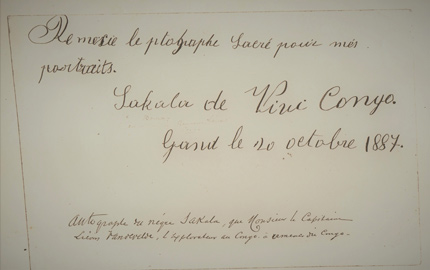 Remercie le ptographe Sacré pour mes
portraits.
Sakala de Vivi Congo.
Gand le 20 octobre 1887.
Autographe du nègre Sakala, que Monsieur le Capitaine
Liévin Vandevelde, l'Explorateur au Congo a ramené du Congo.